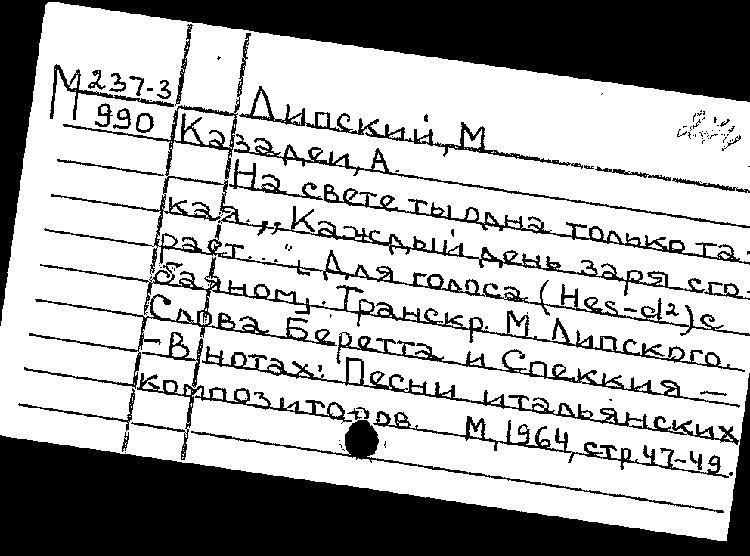 М 237-3
990
Липский, М.
Казадеи, А.
На свете ты одна только та-
кая. „Каждый день заря сго-
рает..." [Для голоса (Hes-d²) с
баяном]. Транскр. М. Липского.
Слова Беретта и Спеккия —
- В нотах: Песни итальянских
композиторов. М, 1964, стр. 47-49.